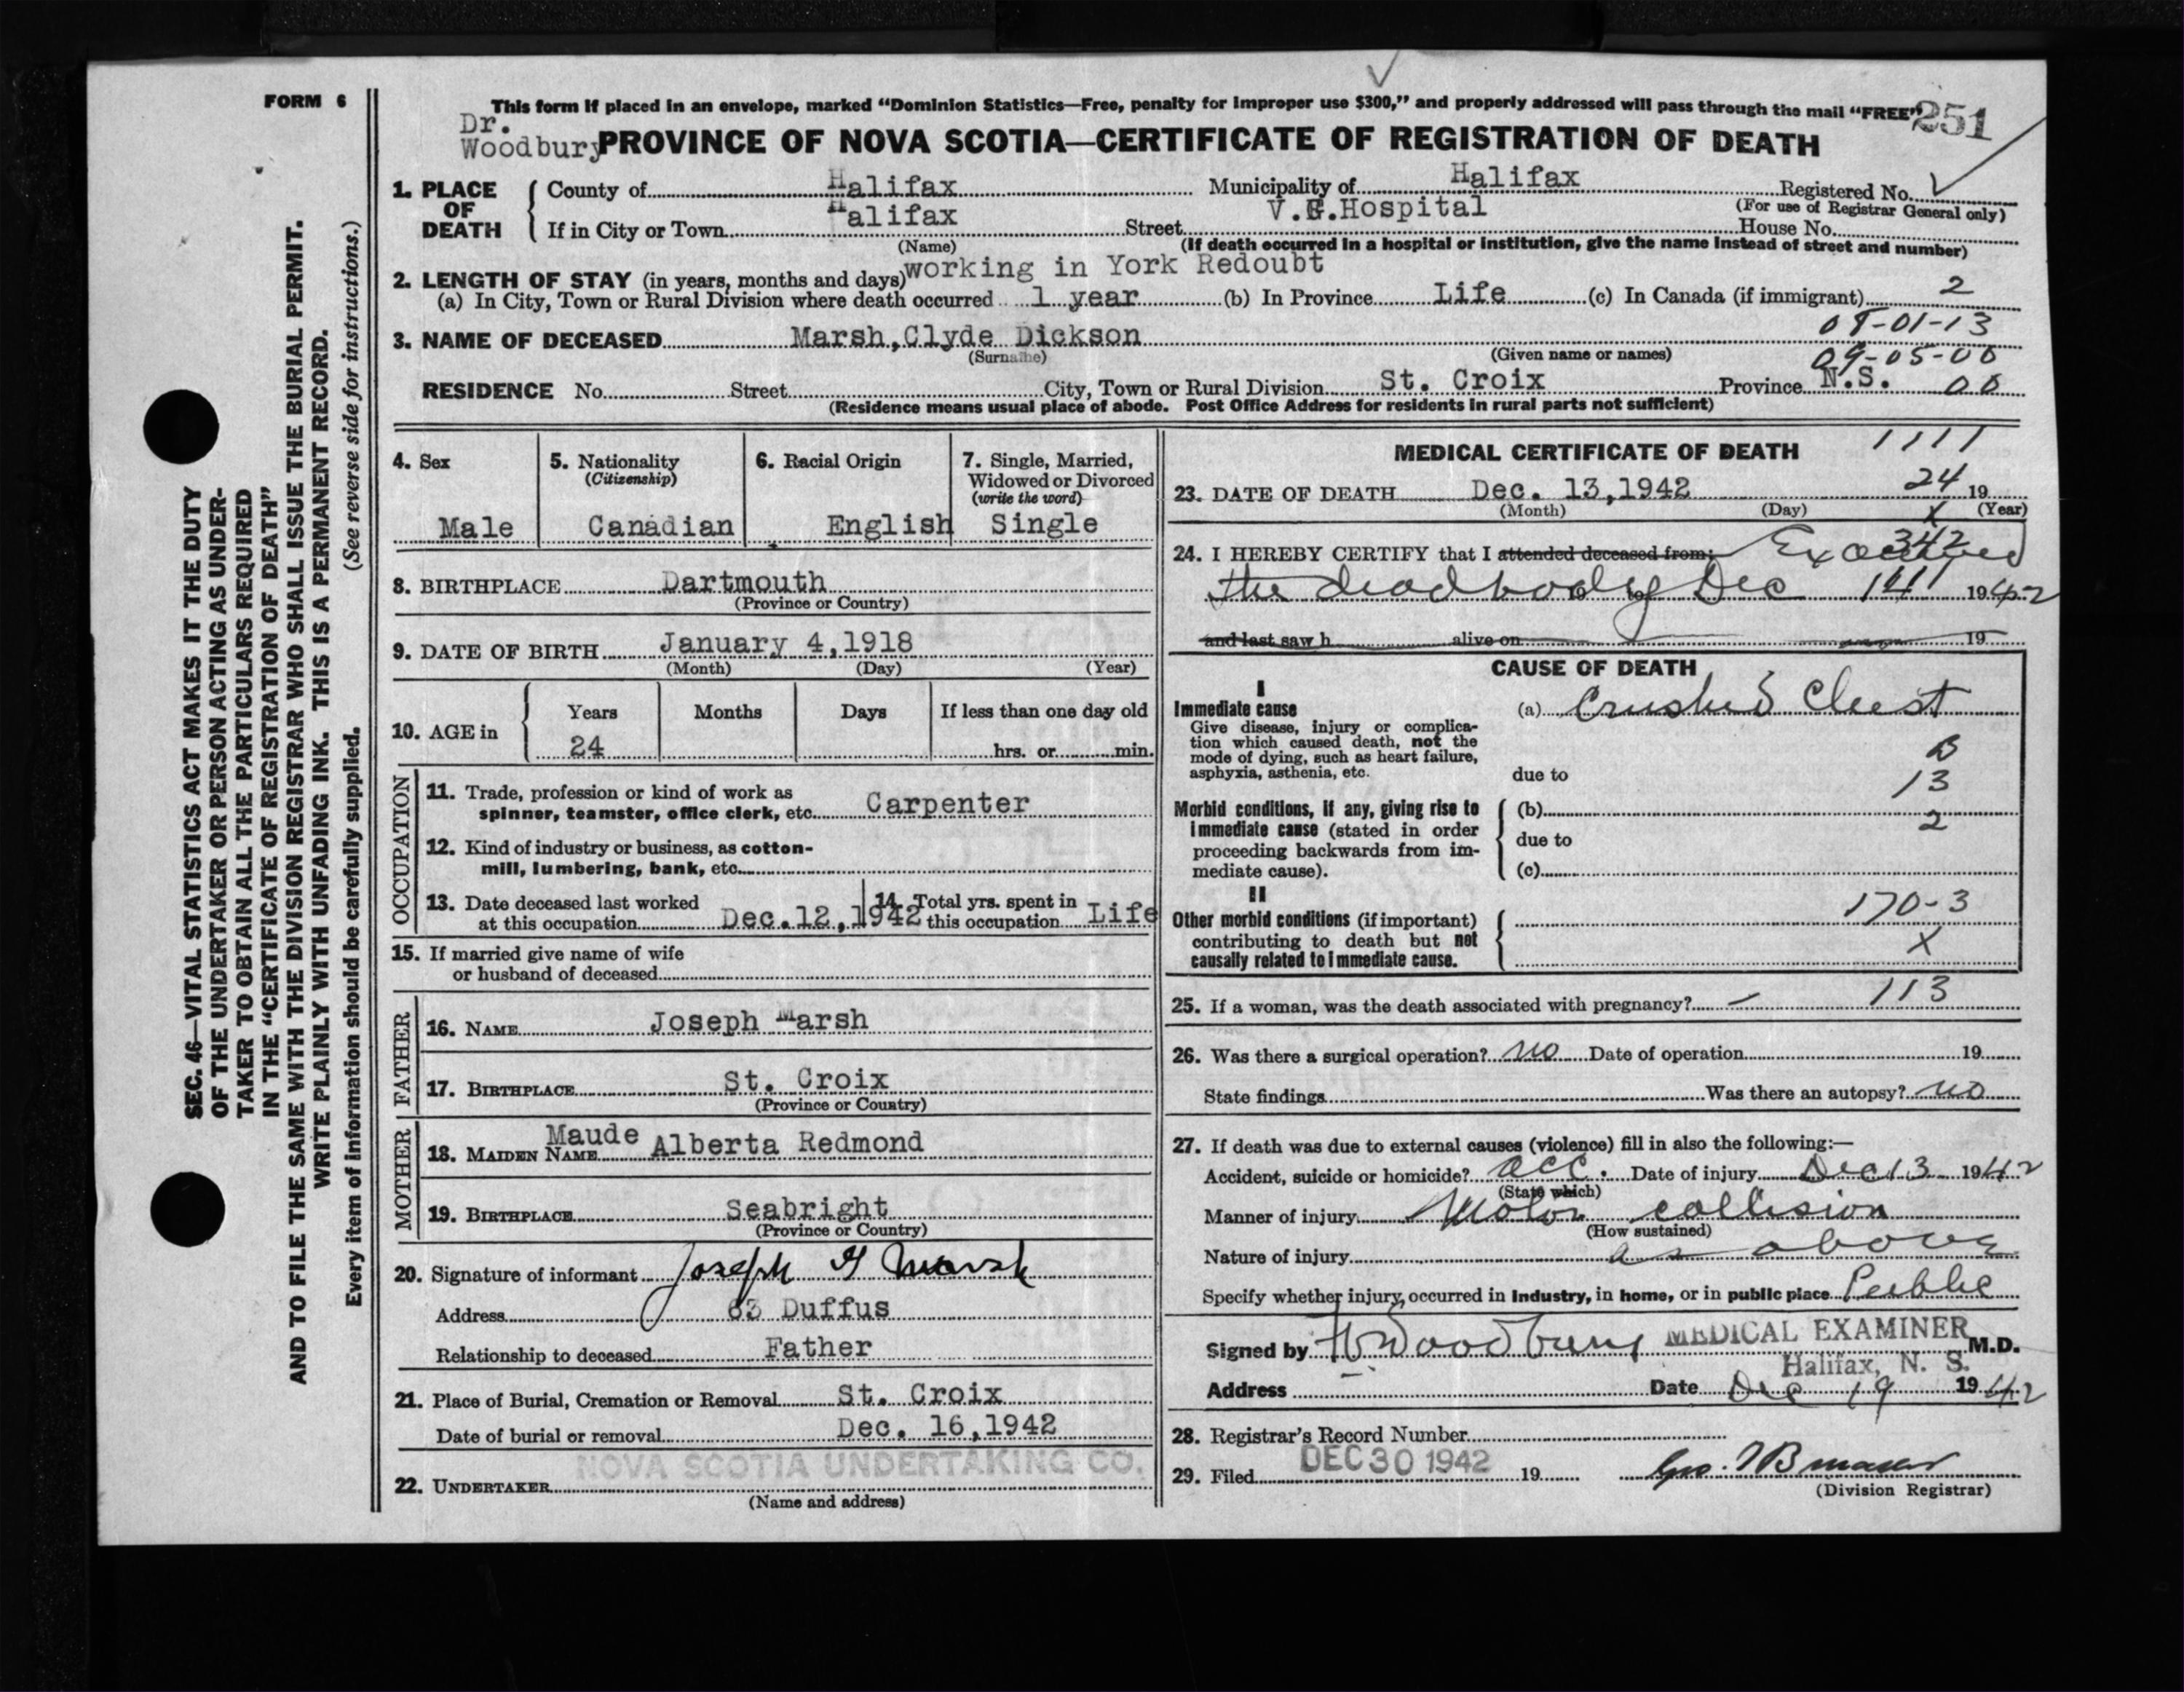 FORM 6
This form if placed in an envelope, marked “Dominion Statistics—Free, penalty for improper use $300,” and properly addressed will pass through the mail “FREE”
251
Dr.
Woodbury
PROVINCE OF NOVA SCOTIA—CERTIFICATE OF REGISTRATION OF DEATH
1. PLACE OF DEATH
County of Halifax Municipality of Halifax Registered No.
(For use of Registrar General only)
If in City or Town Halifax Street V.G.Hospital House No.
(Name) (If death occurred in a hospital or institution, give the name instead of street and number)
2. LENGTH OF STAY (in years, months and days) working in York Redoubt
(a) In City, Town or Rural Division where death occurred 1 year (b) In Province Life (c) In Canada (if immigrant) 2
08-01-13
3. NAME OF DECEASED Marsh,Clyde Dickson
(Surname) (Given name or names)
09-05-00
RESIDENCE No. Street City, Town or Rural Division St. Croix Province N.S. 00
(Residence means usual place of abode. Post Office Address for residents in rural parts not sufficient)
4. Sex
Male
5. Nationality
(Citizenship)
Canadian
6. Racial Origin
English
7. Single, Married,
Widowed or Divorced
(write the word)
Single
8. BIRTHPLACE Dartmouth
(Province or Country)
9. DATE OF BIRTH January 4,1918
(Month) (Day) (Year)
10. AGE in Years Months Days If less than one day old
24 hrs. or min.
OCCUPATION
11. Trade, profession or kind of work as
spinner, teamster, office clerk, etc. Carpenter
12. Kind of industry or business, as cotton-
mill, lumbering, bank, etc.
13. Date deceased last worked
at this occupation Dec.12,1942
14. Total yrs. spent in
this occupation Life
15. If married give name of wife
or husband of deceased
FATHER
16. NAME Joseph Marsh
17. BIRTHPLACE St. Croix
(Province or Country)
MOTHER
18. MAIDEN NAME Maude Alberta Redmond
19. BIRTHPLACE Seabright
(Province or Country)
20. Signature of informant Joseph G Marsh
Address 63 Duffus
Relationship to deceased Father
21. Place of Burial, Cremation or Removal St. Croix
Date of burial or removal Dec. 16,1942
22. UNDERTAKER NOVA SCOTIA UNDERTAKING CO.
(Name and address)
MEDICAL CERTIFICATE OF DEATH
1111
23. DATE OF DEATH Dec. 13,1942 24 19
(Month) (Day) (Year)
X
24. I HEREBY CERTIFY that I attended deceased from: Examined
342
the dead body Dec 1942
19 to
and last saw h alive on 19
CAUSE OF DEATH
I
Immediate cause
Give disease, injury or complica-
tion which caused death, not the
mode of dying, such as heart failure,
asphyxia, asthenia, etc.
(a) Crushed Chest
B
due to
13
Morbid conditions, if any, giving rise to
immediate cause (stated in order
proceeding backwards from im-
mediate cause).
(b)
2
due to
(c)
II
Other morbid conditions (if important)
contributing to death but not
causally related to immediate cause.
170-3
X
25. If a woman, was the death associated with pregnancy? – 113
26. Was there a surgical operation? no Date of operation 19
State findings Was there an autopsy? no
27. If death was due to external causes (violence) fill in also the following:—
Accident, suicide or homicide? acc. Date of injury Dec 13 1942
(State which)
Manner of injury Motor collision
(How sustained)
Nature of injury as above
Specify whether injury occurred in industry, in home, or in public place Public
Signed by Woodbury MEDICAL EXAMINER M.D.
Halifax, N. S.
Address Date Dec 19 1942
28. Registrar’s Record Number
29. Filed DEC 30 1942 19
(Division Registrar)
SEC. 46—VITAL STATISTICS ACT MAKES IT THE DUTY
OF THE UNDERTAKER OR PERSON ACTING AS UNDER-
TAKER TO OBTAIN ALL THE PARTICULARS REQUIRED
IN THE “CERTIFICATE OF REGISTRATION OF DEATH”
AND TO FILE THE SAME WITH THE DIVISION REGISTRAR WHO SHALL ISSUE THE BURIAL PERMIT.
WRITE PLAINLY WITH UNFADING INK. THIS IS A PERMANENT RECORD.
Every item of information should be carefully supplied. (See reverse side for instructions.)